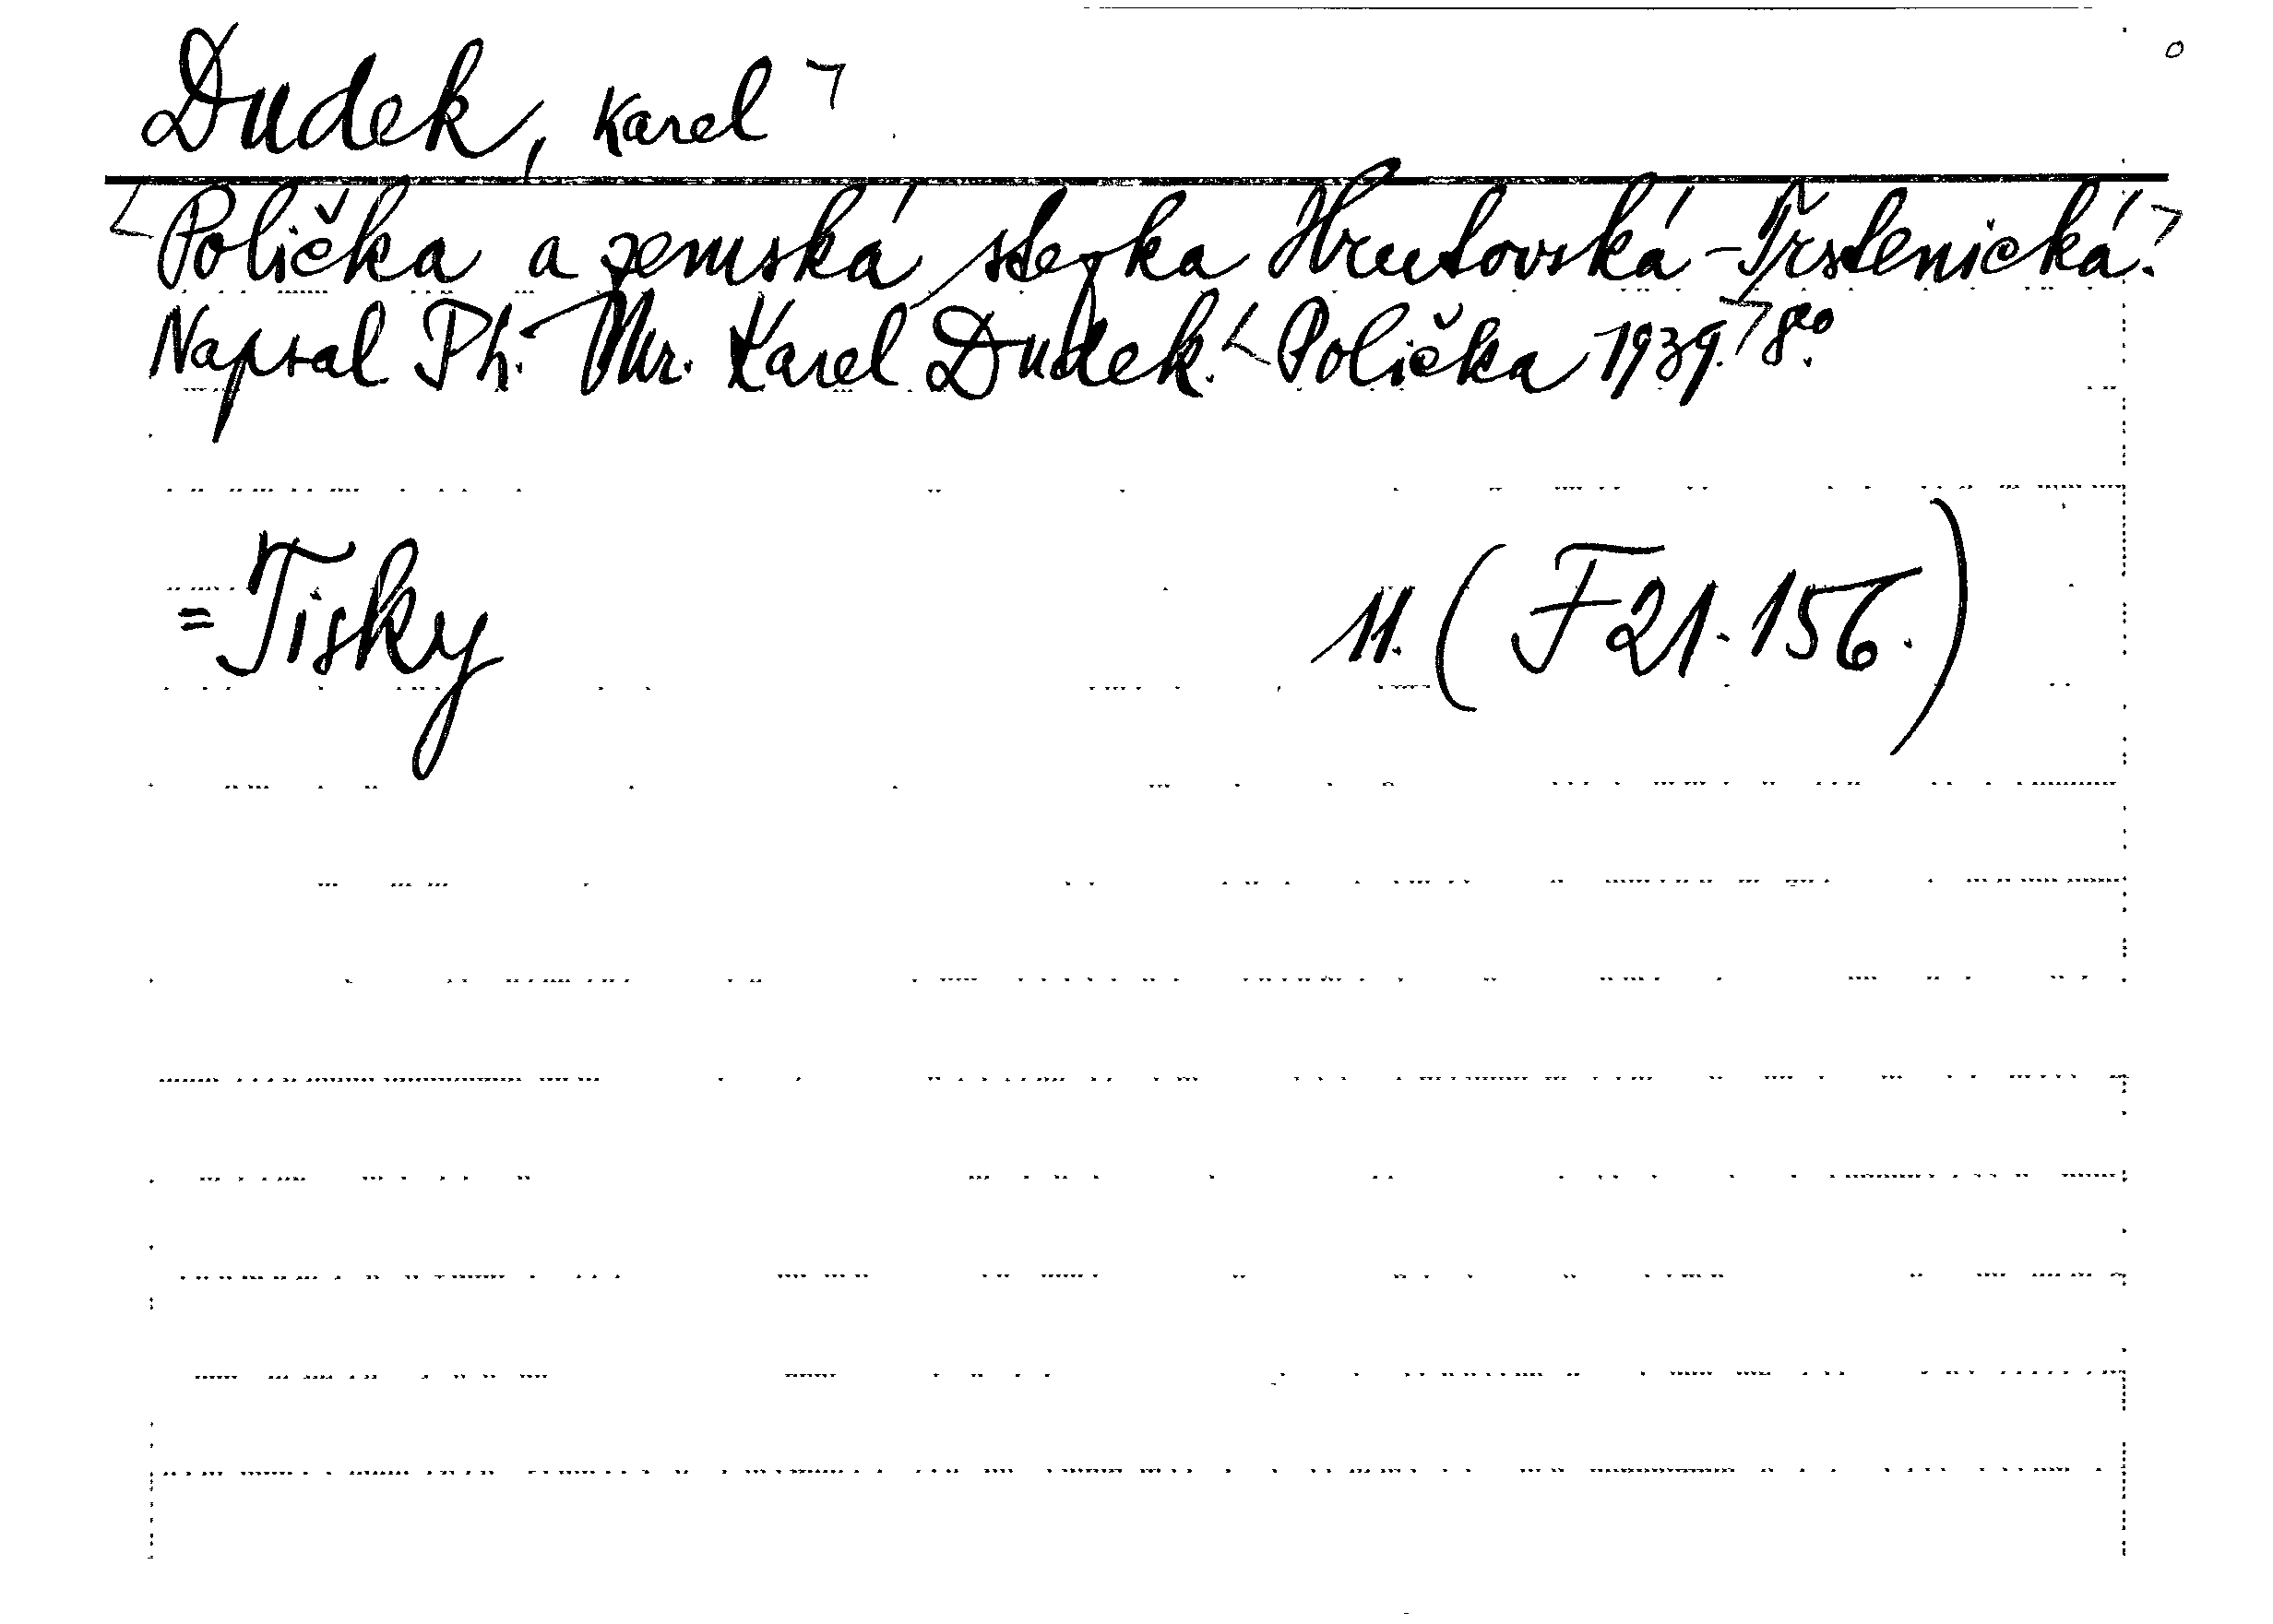 Dudek, Karel
Polička a zemská stezka Hrutovská-Trstenická.
Napsal Ph. Mr. Karel Dudek. Polička 1939. 8o.
=Tisky 11. (F21.156.)